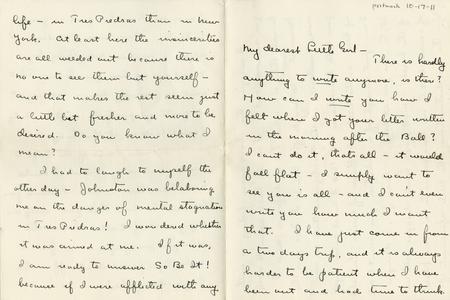 postmark 10-17-11
My dearest Little Girl -
There is hardly
anything to write anymore, is there?
How can I write you how I
felt when I got your letter written
in the morning after the Ball?
I can't do it, thats all - it would
fall flat - I simply want to
see you is all - and I can't even
write you how much I want
that. I have just come in from
a two days trip, and it is always
harder to be patient when I have
been out and had time to think.
life - in Tres Piedras than in New
York. At least here the insincerities
are all weeded out because there is
no one to see them but yourself -
and that makes the rest seem just
a little bit fresher and more to be
desired. Do you know what I
mean?
I had to laugh to myself the
other day - Johnston was belaboring
me on the danger of mental stagnation
in Tres Piedras! I wondered whether
it was aimed at me. If it was,
I am ready to answer So Be It!
because if I were afflicted with any